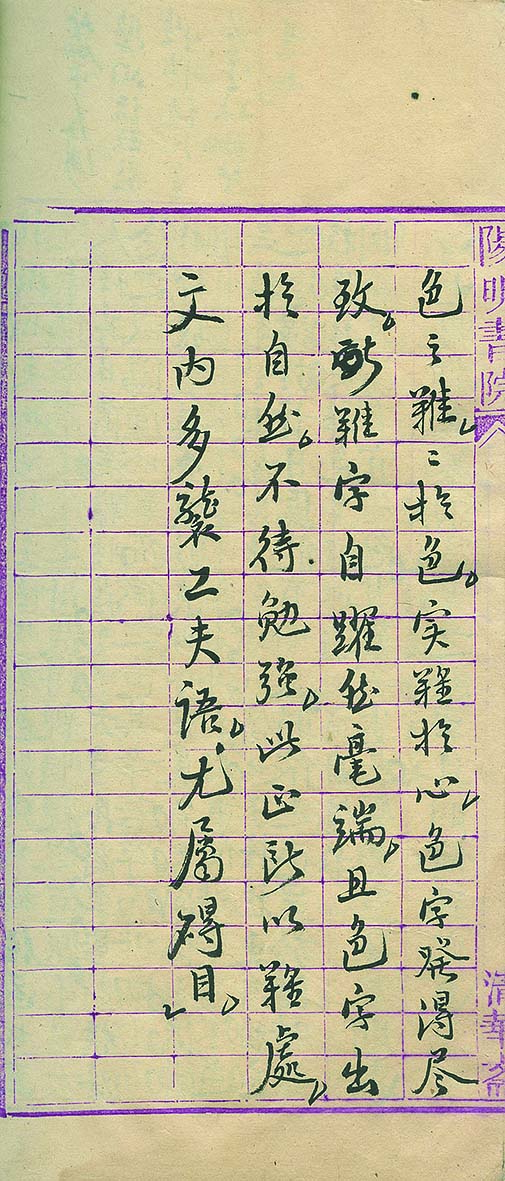 陽明書院
清華齋
色之難。〻於色。实難於心。色字發得尽
致。斯難字自躍然毫端。且色字出
於自然。不待勉强。此正所以難處。
文内多襲工夫語。尤屬碍目。